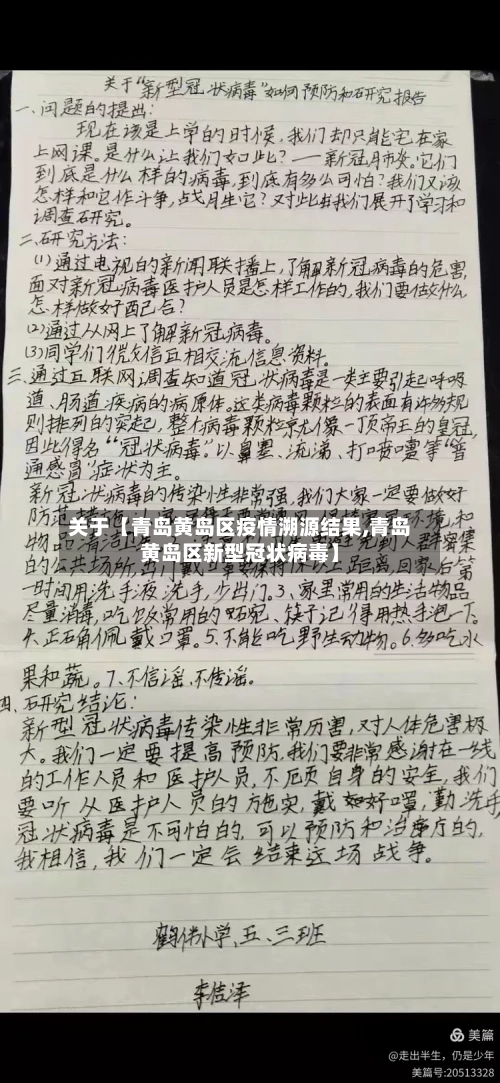 关于“新型冠状病毒”如何预防和研究报告
一、问题的提出：
现在该是上学的时候，我们却只能宅在家
上网课。是什么让我们如此？——新冠肺炎。它们
到底是什么样的病毒，到底有多么可怕？我们又该
怎样和它作斗争，战胜它？对此我们展开了学习和
调查研究。
二、研究方法：
(1)通过电视的新闻联播上，了解新冠病毒的危害，
面对新冠病毒医护人员是怎样工作的，我们要做什么
怎样做好自己？
(2)通过从网上了解新冠病毒。
(3)同学们微信互相交流信息资料。
三、通过互联网调查知道冠状病毒是一类主要引起呼吸
道、肠道疾病的病原体。这类病毒颗粒的表面有许多规
则排列的突起，整个病毒颗粒就像一顶帝王的皇冠，
因此得名“冠状病毒”。以鼻塞、流涕、打喷嚏等“普
通感冒”症状为主。
新冠状病毒的传染性非常强，我们大家一定要做好
关于【青岛黄岛区疫情溯源结果,青岛
黄岛区新型冠状病毒】
一时间用洗手液洗手，少出门。3、家里常用的生活物品
尽量消毒，吃饭常用的碗、筷子记得用热手泡一下。
4、正确佩戴口罩。5、不能吃野生动物。6、多吃水
果和蔬。7、不信谣、不传谣。
四、研究结论：
新型冠状病毒传染性非常厉害，对人体危害极
大。我们一定要提高预防，我们要非常感谢在一线
的工作人员和医护人员，不顾自身的安全，我们
要听从医护人员的施实，戴好口罩，勤洗手
冠状病毒是不可怕的，可以预防和治疗的，
我相信，我们一定会结束这场战争。
五、三班
美篇
@走出半生，仍是少年
美篇号:20513328